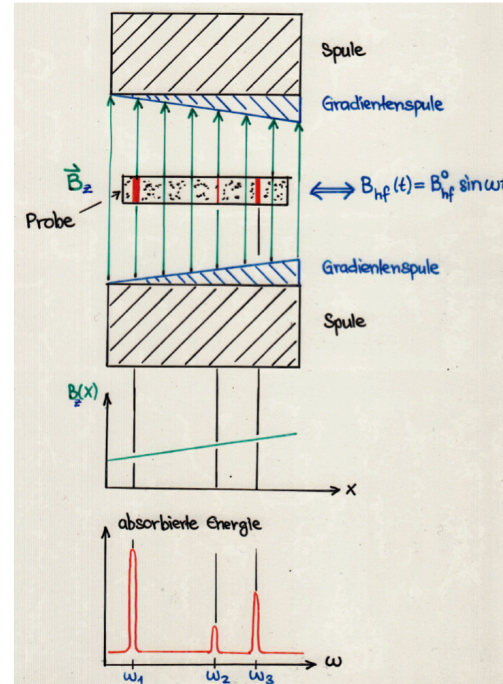 Spule
Gradientenspule
B⃗z
Probe
B_hf(t) = B⁰_hf sin ωt
Gradientenspule
Spule
Bz(x)
x
absorbierte Energie
ω
ω1 ω2 ω3